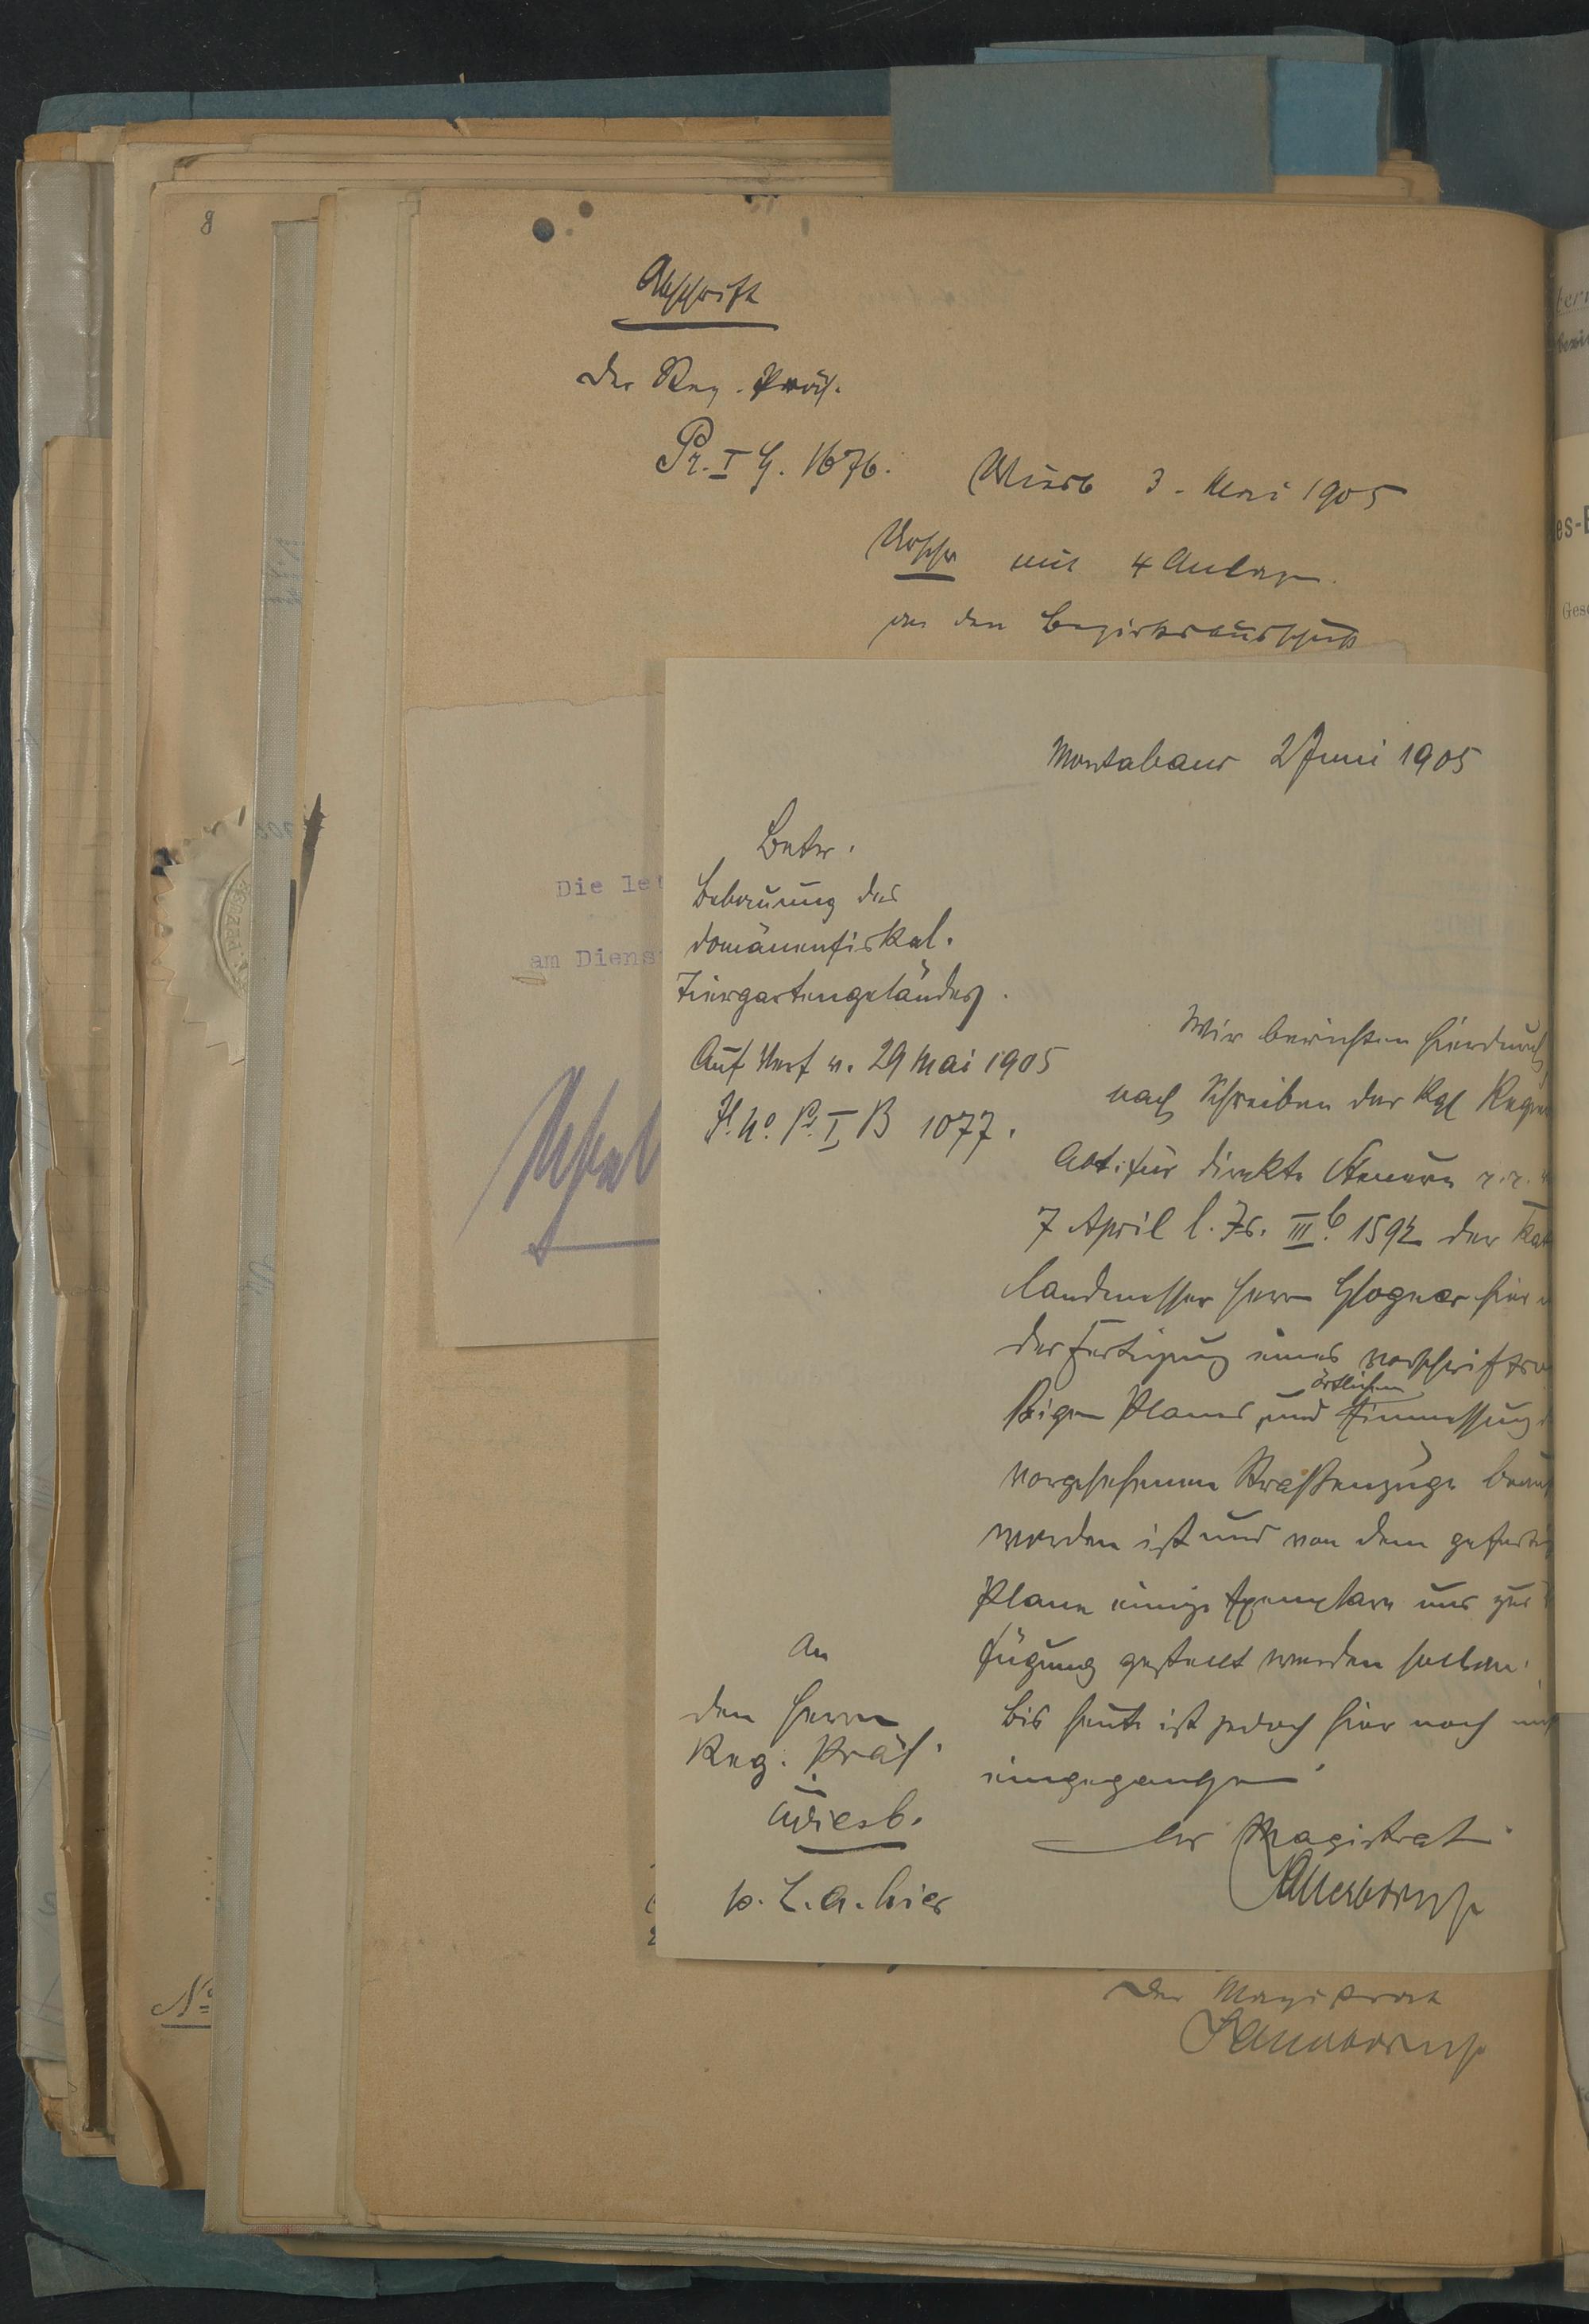 8
Abschrift
Der Reg. Präs.
Pr. I G. 1676.
Wiesb 3. Mai 1905
Urschr mit 4 Anlagen
an den Bezirksausschuß
Die let
am Diens
Montabaur 2 Juni 1905
Betr.
Bebauung des
domänenfiskal.
Tiergartengeländes.
Auf Verf v. 29 Mai 1905
J. No. Pr. I, B 1077.
Wir berichten hierdurch,
nach Schreiben der Kgl Regie
Abt. für direkte Steuern
7 April l. Js. III b. 1592 der Kat
landmesser Herr Glogner hier
der Fertigung eines vorschrifts
ßigen Planes und örtlichen Einmessung
vorgesehenen Straßenzüge beauf
worden ist und von dem gefertig
Plane einige Exemplare uns zur
fügung gestellt werden sollen.
Bis heute ist jedoch hier noch
eingegangen.
Der Magistrat
An
den Herrn
Reg. Präs.
Wiesb.
p. L. A. hier
Der Magistrat
No